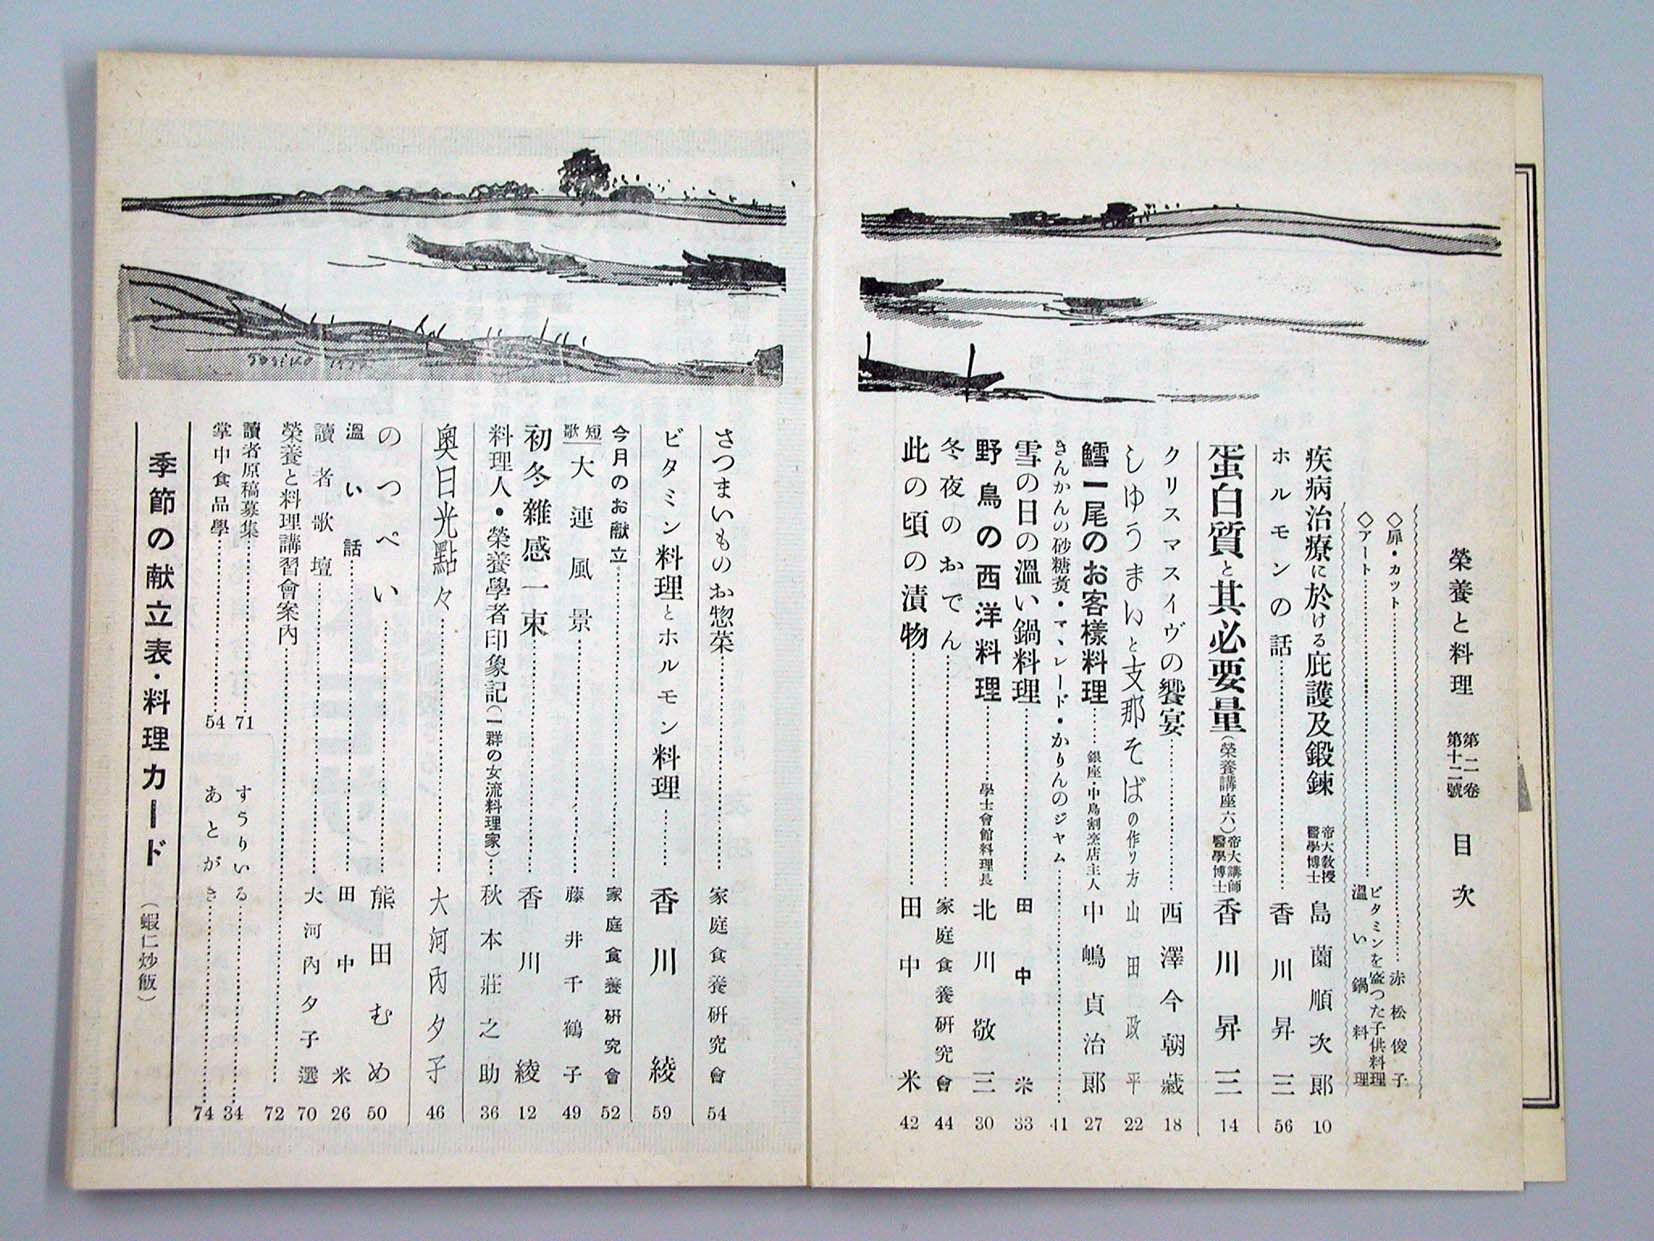 榮養と料理 第二卷 第十二號 目次
◇扉・カット……赤松俊子
◇アート……ビタミンを盛つた子供料理 溫い鍋料理
疾病治療に於ける庇護及鍛鍊 帝大敎授 醫學博士 島薗順次郎 10
ホルモンの話……香川昇三 56
蛋白質と其必要量(榮養講座六) 帝大講師 醫學博士 香川昇三 14
クリスマスイヴの饗宴……西澤今朝藏 18
しゆうまいと支那そばの作り方 山田政平 22
鱈一尾のお客樣料理……銀座・中島割烹店主人 中嶋貞治郎 27
きんかんの砂糖煮・マヽレード・かりんのジャム……41
雪の日の溫い鍋料理……田中米 33
野鳥の西洋料理……學士會館料理長 北川敬三 30
冬夜のおでん……家庭食養硏究會 44
此の頃の漬物……田中米 42
さつまいものお惣菜……家庭食養硏究會 54
ビタミン料理とホルモン料理……香川綾 59
今月のお献立……家庭食養硏究會 52
短歌 大連風景……藤井千鶴子 49
初冬雜感一束……香川綾 12
料理人・榮養學者印象記(一群の女流料理家)…秋本莊之助 36
奧日光點々……大河內夕子 46
のつぺい……熊田むめ 50
溫い話……田中米 26
讀者歌壇……大河內夕子選 70
榮養と料理講習會案內……72
讀者原稿募集……71
すうりいる……34
掌中食品學……54
あとがき……74
季節の献立表・料理カード(蝦仁炒飯)
gosiko 1936